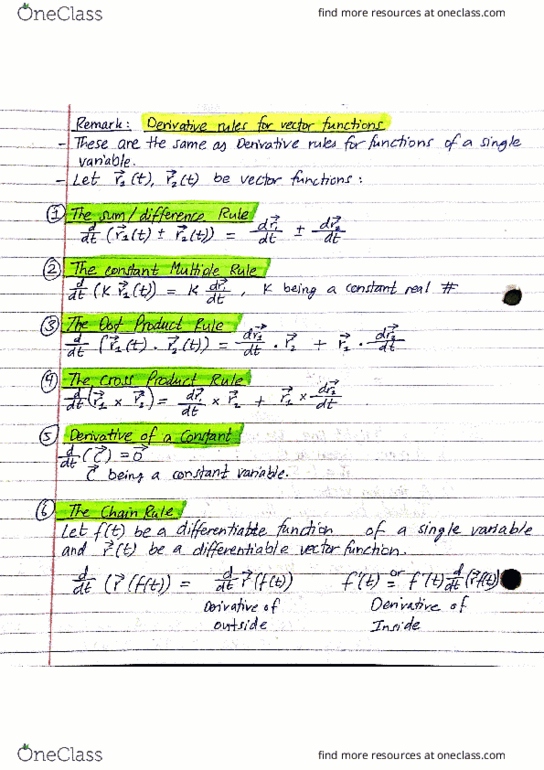 OneClass
find more resources at oneclass.com
Remark: Derivative rules for vector functions
- These are the same as Derivative rules for functions of a single
variable.
- Let r⃗₁(t), r⃗₂(t) be vector functions:
① The sum/difference Rule
d/dt (r⃗₁(t) ± r⃗₂(t)) = dr⃗₁/dt ± dr⃗₂/dt
② The constant Multiple Rule
d/dt (K r⃗₁(t)) = K dr⃗₁/dt, K being a constant real #
③ The Dot Product Rule
d/dt (r⃗₁(t) · r⃗₂(t)) = dr⃗₁/dt · r⃗₂ + r⃗₁ · dr⃗₂/dt
④ The cross Product Rule
d/dt (r⃗₁ × r⃗₂) = dr⃗₁/dt × r⃗₂ + r⃗₁ × dr⃗₂/dt
⑤ Derivative of a Constant
d/dt (c⃗) = 0⃗
C⃗ being a constant variable.
⑥ The Chain Rule
Let f(t) be a differentiable function of a single variable
and r⃗(t) be a differentiable vector function.
d/dt (r⃗(f(t)) = d/dt r⃗(f(t)) f'(t) or = f'(t) d/dt (r⃗f(t))
Derivative of Derivative of
outside Inside
OneClass
find more resources at oneclass.com